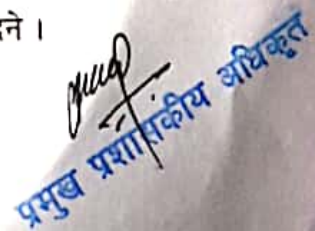 ने ।
प्रमुख प्रशासकीय अधिकृत